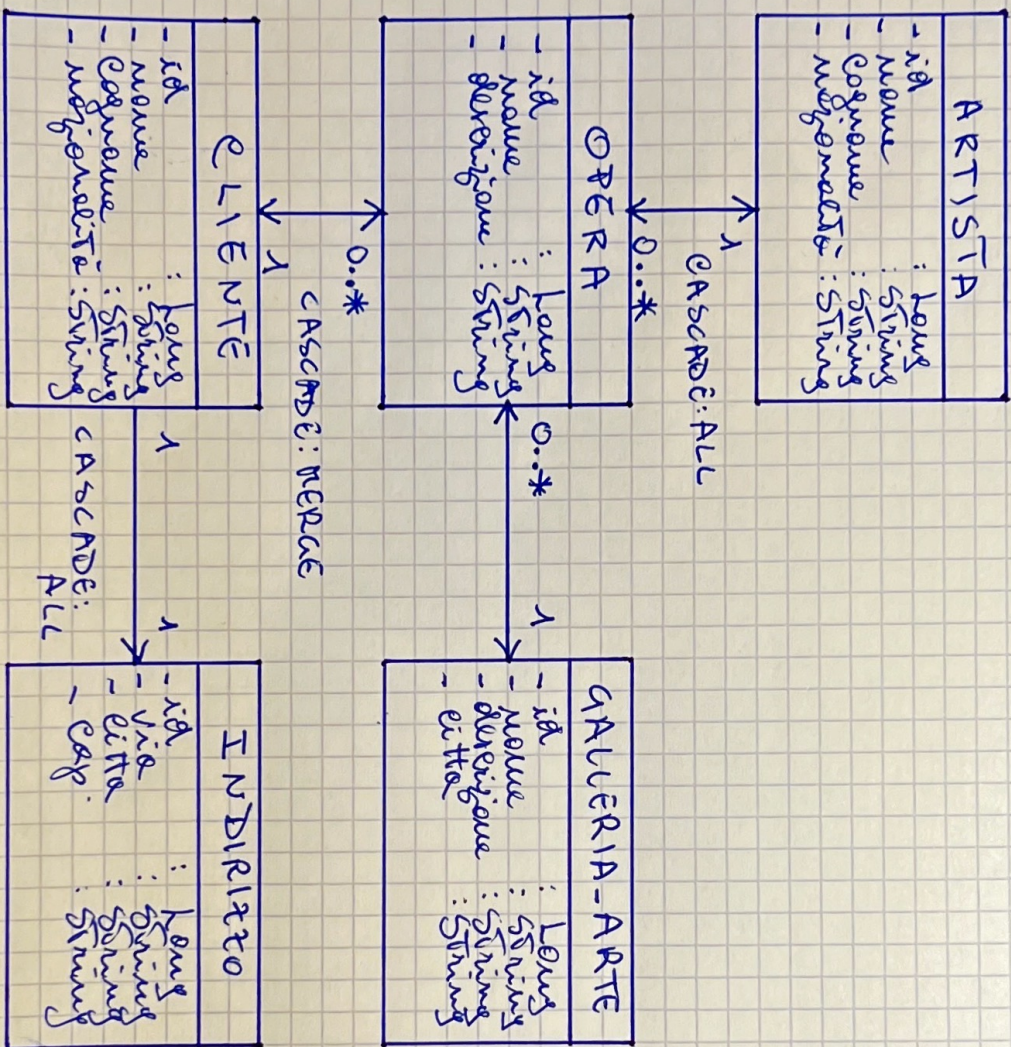 ARTISTA
- id : Long
- nome : String
- cognome : String
- nazionalità : String
1
CASCADE: ALL
0..*
OPERA
- id : Long
- nome : String
- descrizione : String
0..*
1
GALLERIA-ARTE
- id : Long
- nome : String
- descrizione : String
- citta : String
0..*
CASCADE: MERGE
1
CLIENTE
- id : Long
- nome : String
- cognome : String
- nazionalità : String
1
1
CASCADE:
ALL
INDIRIZZO
- id : Long
- via : String
- citta : String
- cap. : String